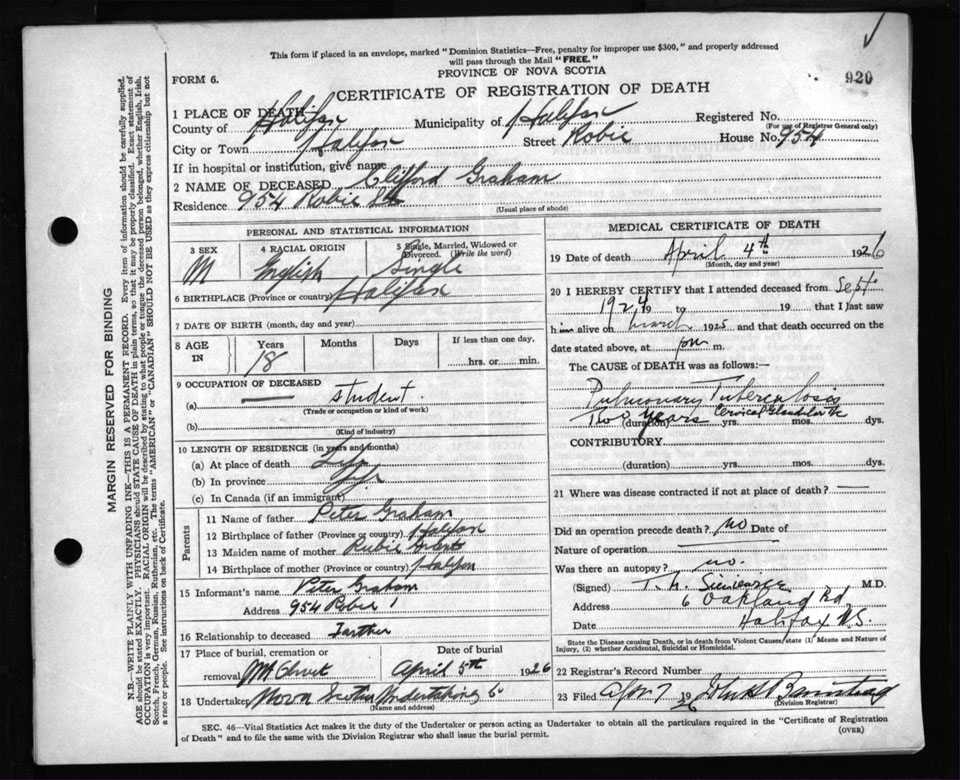 This form if placed in an envelope, marked "Dominion Statistics—Free, penalty for improper use $300," and properly addressed
will pass through the Mail "FREE."
FORM 6.
PROVINCE OF NOVA SCOTIA
920
CERTIFICATE OF REGISTRATION OF DEATH
1 PLACE OF DEATH
County of Halifax Municipality of Halifax Registered No.
(For use of Registrar General only)
City or Town Halifax Street Robie House No. 954
If in hospital or institution, give name
2 NAME OF DECEASED Clifford Graham
Residence 954 Robie St
(Usual place of abode)
PERSONAL AND STATISTICAL INFORMATION
3 SEX M
4 RACIAL ORIGIN English
5 Single, Married, Widowed or Divorced. (Write the word) Single
6 BIRTHPLACE (Province or country) Halifax
7 DATE OF BIRTH (month, day and year)
8 AGE IN Years Months Days If less than one day,
18 hrs. or min.
9 OCCUPATION OF DECEASED
(a) student.
(Trade or occupation or kind of work)
(b)
(Kind of industry)
10 LENGTH OF RESIDENCE (in years and months)
(a) At place of death Life
(b) In province
(c) In Canada (if an immigrant)
Parents
11 Name of father Peter Graham
12 Birthplace of father (Province or country) Halifax
13 Maiden name of mother Rubie
14 Birthplace of mother (Province or country) Halifax
15 Informant's name Peter Graham
Address 954 Robie
16 Relationship to deceased Farther
17 Place of burial, cremation or removal Date of burial
Mt Olivet April 5th 1926
18 Undertaker Nova Scotia Undertaking Co
(Name and address)
MEDICAL CERTIFICATE OF DEATH
19 Date of death April 4th 1926
(Month, day and year)
20 I HEREBY CERTIFY that I attended deceased from Sept.
1924 19 to 19 that I last saw
him alive on March 1925 and that death occurred on
date stated above, at pm m.
The CAUSE of DEATH was as follows:—
Pulmonary Tuberculosis
Two years Cervical
(duration) yrs. mos. dys.
CONTRIBUTORY
(duration) yrs. mos. dys.
21 Where was disease contracted if not at place of death? —
Did an operation precede death? no Date of
Nature of operation
Was there an autopsy? no.
(Signed) M.D.
Address 6 Oakland Rd
Date Halifax N.S.
State the Disease causing Death, or in death from Violent Causes state (1) Means and Nature of
Injury, (2) whether Accidental, Suicidal or Homicidal.
22 Registrar's Record Number
23 Filed Apr 7 1926
(Division Registrar)
SEC. 46—Vital Statistics Act makes it the duty of the Undertaker or person acting as Undertaker to obtain all the particulars required in the "Certificate of Registration
of Death" and to file the same with the Division Registrar who shall issue the burial permit.
(OVER)
MARGIN RESERVED FOR BINDING
N.B.—WRITE PLAINLY WITH UNFADING INK—THIS IS A PERMANENT RECORD. Every item of information should be carefully supplied.
AGE should be stated EXACTLY. PHYSICIANS should STATE CAUSE OF DEATH in plain terms, so that it may be properly classified. Exact statement of
OCCUPATION is very important. RACIAL ORIGIN will be described by stating to what people or tongue the deceased person belonged, whether English, Irish,
Scotch, French, German, Russian, Ruthenian, etc. The terms "AMERICAN" or "CANADIAN" SHOULD NOT BE USED as they express citizenship but not
a race or people. See instructions on back of Certificate.